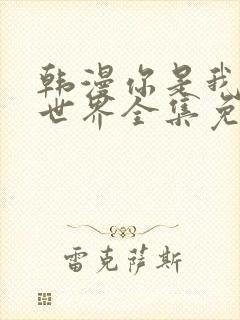 韩漫你是我
世界全集免
雷克萨斯